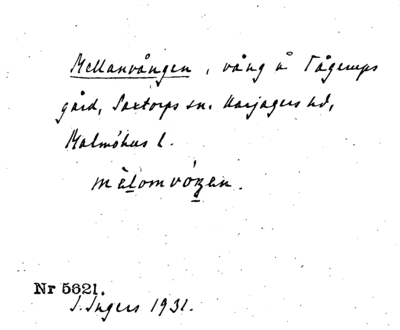 Mellanvången, vång å Tågerups
gård, Saxtorps sn. Harjagers hd,
Malmöhus l.
mèlomvóŋen.
Nr 5621.
I. Ingers 1931.